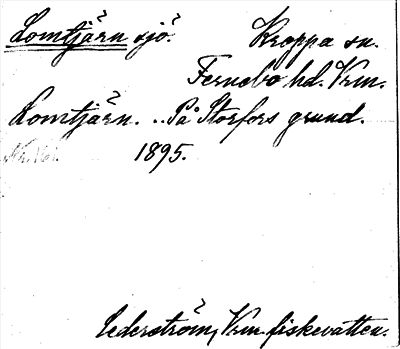 Lomtjärn sjö. Kroppa sn.
Fernebo hd. Vrm.
Lomtjärn. .. På Storfors grund.
1895.
Cederström, Vrm fiskevatten.